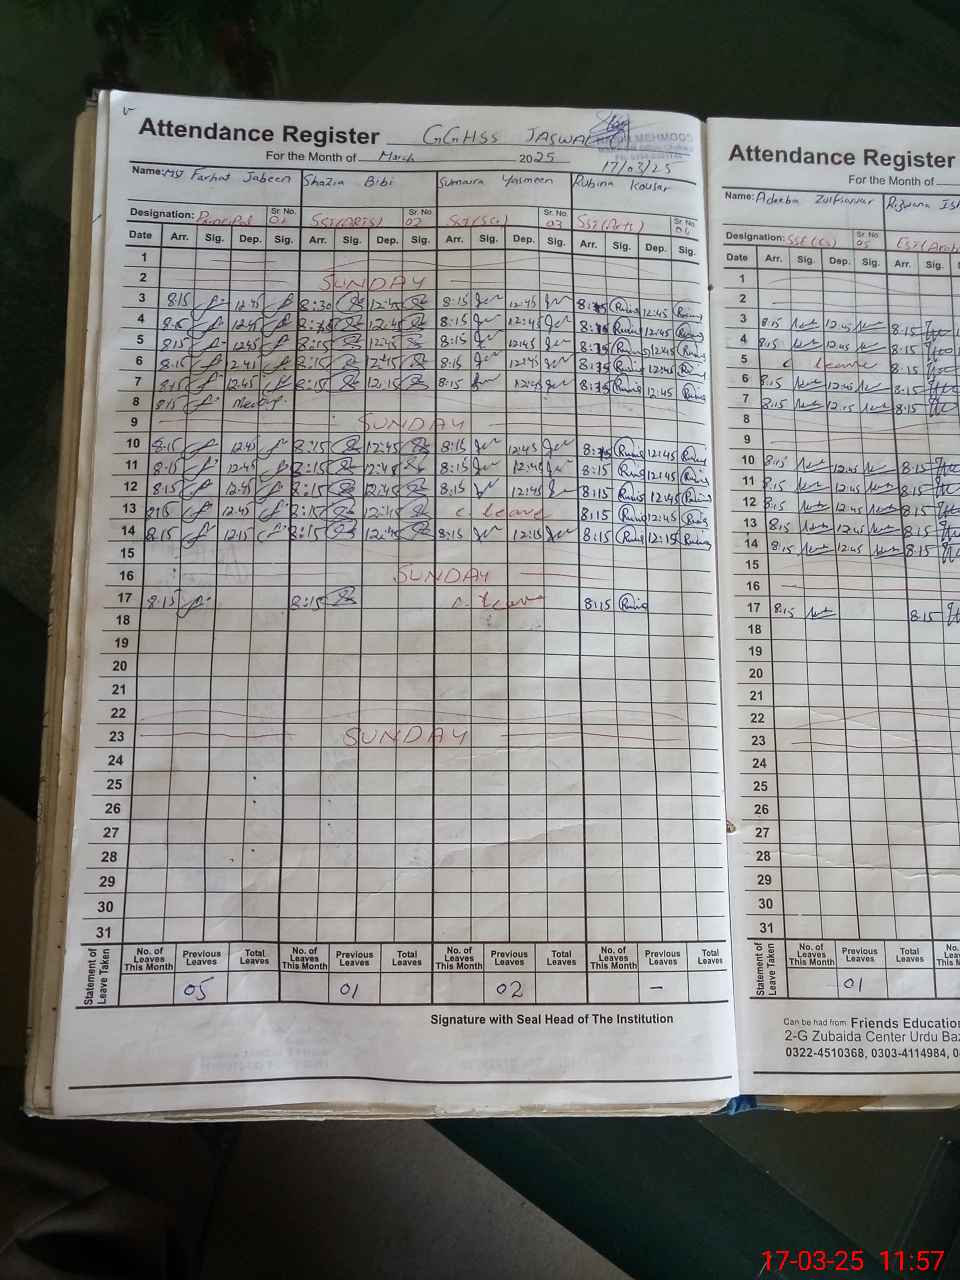 Attendance Register GGHSS JASWAL
MEHMOOD
For the Month of March 2025
17/03/25
Name: Farhat Jabeen Shazia Bibi Sumaira Yasmeen Rubina Kousar
Designation: Principal Sr. No. 01 SST(ARTS) Sr. No. 02 SST(Sci) Sr. No. 03 SST(Arts) Sr. No. 04
Date Arr. Sig. Dep. Sig. Arr. Sig. Dep. Sig. Arr. Sig. Dep. Sig. Arr. Sig. Dep. Sig.
1
2 SUNDAY
3 8:15 12:45 8:30 12:45 8:15 12:45 12:45
4 12:45 12:45 8:15 12:45 12:45
5 8:15 12:45 8:15 12:45 8:15 12:45 12:45
6 8:15 8:15 12:45 8:15 12:45 12:45
7 8:15 12:45 8:15 12:15 8:15 12:45 12:45
8 8:15 Meeting
9 SUNDAY
10 8:15 12:45 8:15 12:45 8:15 12:45 12:45
11 8:15 12:45 8:15 12:45 8:15 12:45 8:15 12:45
12 8:15 12:45 8:15 12:45 8:15 12:45 8:15 12:45
13 12:45 8:15 12:45 c leave 8:15 12:45
14 8:15 12:15 8:15 12:45 8:15 12:15 8:15 12:15
15
16 SUNDAY
17 8:15 8:15 c leave 8:15
18
19
20
21
22
23 SUNDAY
24
25
26
27
28
29
30
31
Statement of Leave Taken No. of Leaves This Month Previous Leaves Total Leaves No. of Leaves This Month Previous Leaves Total Leaves No. of Leaves This Month Previous Leaves Total Leaves No. of Leaves This Month Previous Leaves Total Leaves
05 01 02 –
Signature with Seal Head of The Institution
Attendance Register
For the Month of
Name: Adeeba Zulfiqar Rizwana
Designation: SSE(CS) Sr. No. 05
Date Arr. Sig. Dep. Sig. Arr. Sig.
1
2
3 8:15 12:45 8:15
4 8:15 12:45 8:15
5 c leave 8:15
6 8:15 12:45 8:15
7 8:15 12:15 8:15
8
9
10 8:15 12:45 8:15
11 8:15 12:45 8:15
12 8:15 12:45 8:15
13 8:15 12:45 8:15
14 8:15 12:45 8:15
15
16
17 8:15 8:15
18
19
20
21
22
23
24
25
26
27
28
29
30
31
Statement of Leave Taken No. of Leaves This Month Previous Leaves Total Leaves
01
Can be had from Friends Education
2-G Zubaida Center Urdu
0322-4510368, 0303-4114984,
17-03-25 11:57